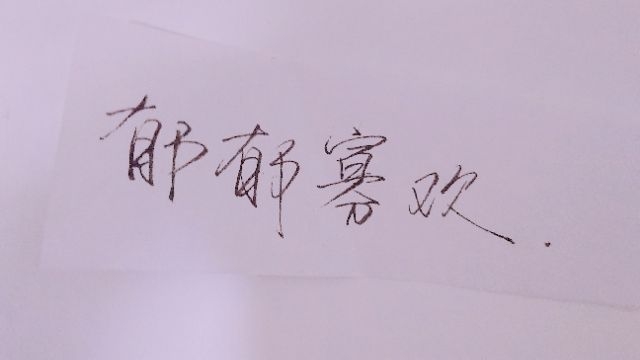 郁郁寡欢.